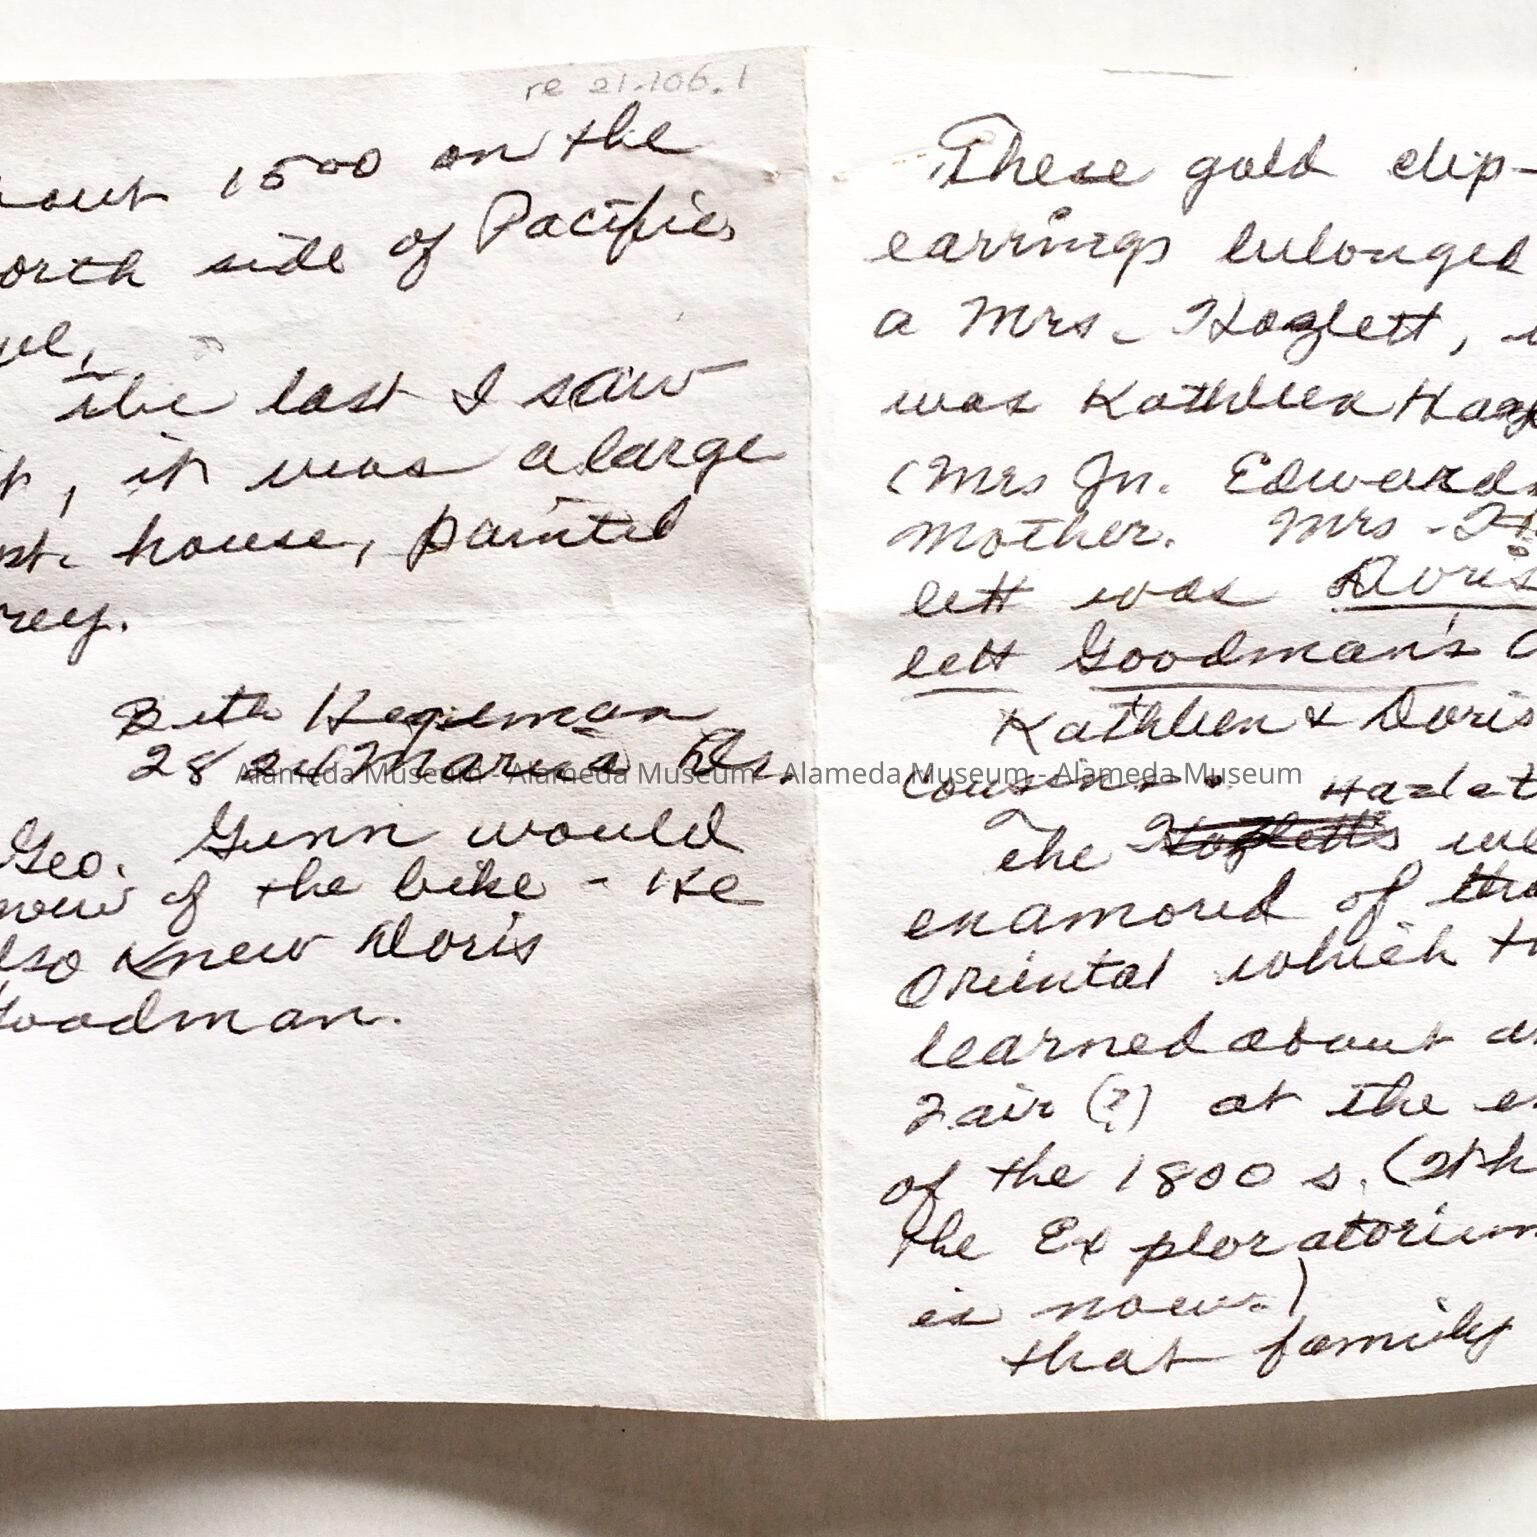 re 21.106.1
out 1500 on the
orth side of Pacific
the last I saw
it, it was a large
house, painted
rey.
Beth Hegeman
Marina Dr.
Geo. Gunn would
now of the bike - He
lso knew Doris
oodman.
These gold clip-
earrings belonged
a Mrs. Hazlett,
was Kathleen Haz
(Mrs Jn. Edwards
Mother. Mrs - H
lett was Doris
lett Goodman's
Kathleen & Doris
cousins. Hazlet
The Hozletts we
enamored of the
Oriental which th
learned about a
Fair (?) at the e
of the 1800 s. (
the Exploratorium
is now.)
that family
Alameda Museum - Alameda Museum - Alameda Museum - Alameda Museum